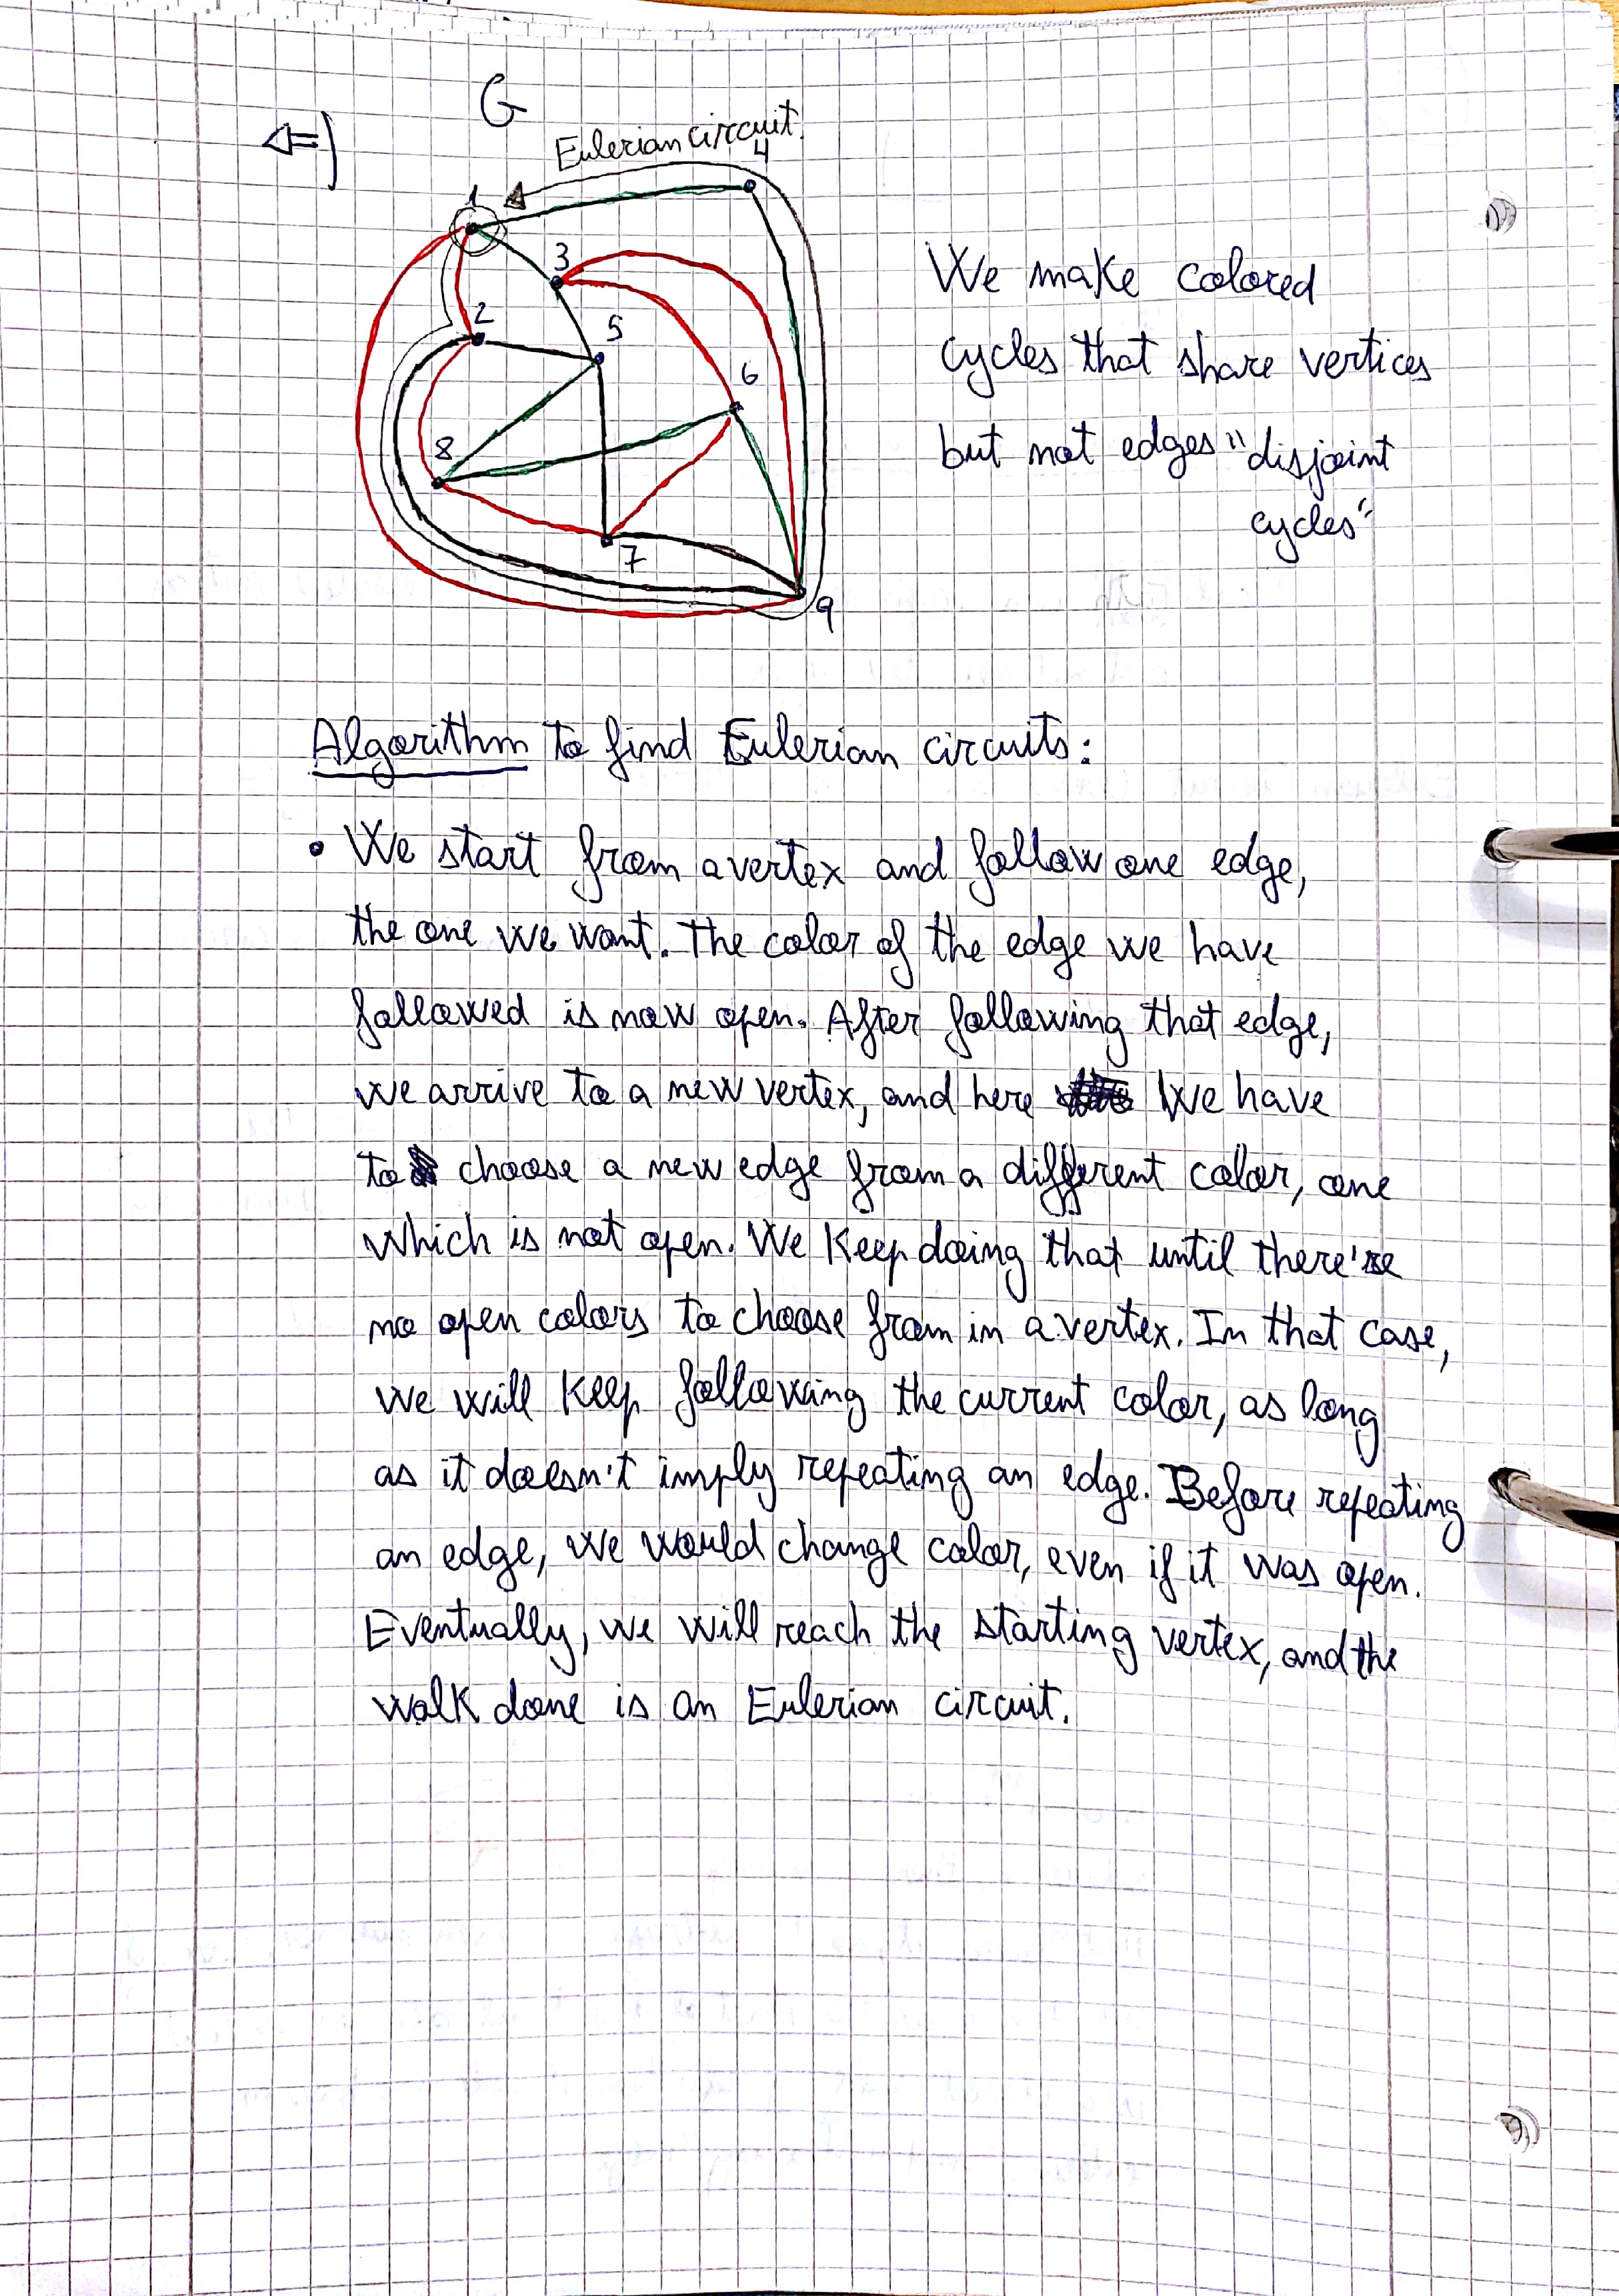 G
⇐)
Eulerian circuit.
1
4
3
2
5
6
8
7
9
We make colored
cycles that share vertices
but not edges "disjoint
cycles"
Algorithm to find Eulerian circuits:
• We start from a vertex and follow one edge,
the one we want. The color of the edge we have
followed is now open. After following that edge,
we arrive to a new vertex, and here we have
to choose a new edge from a different color, one
which is not open. We keep doing that until there're
no open colors to choose from in a vertex. In that case,
we will keep following the current color, as long
as it doesn't imply repeating an edge. Before repeating
an edge, we would change color, even if it was open.
Eventually, we will reach the starting vertex, and the
walk done is an Eulerian circuit.